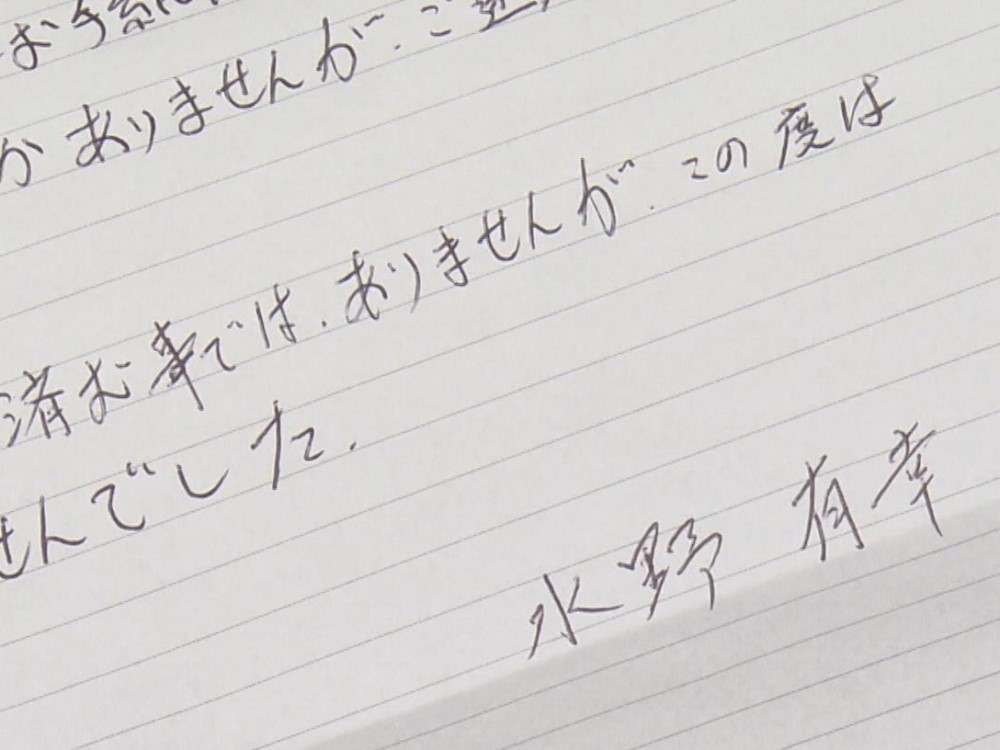 お手紙
かありませんが、ご迷
ありませんが、この度は
済む事では、ありませんが
せんでした。
水野 有幸